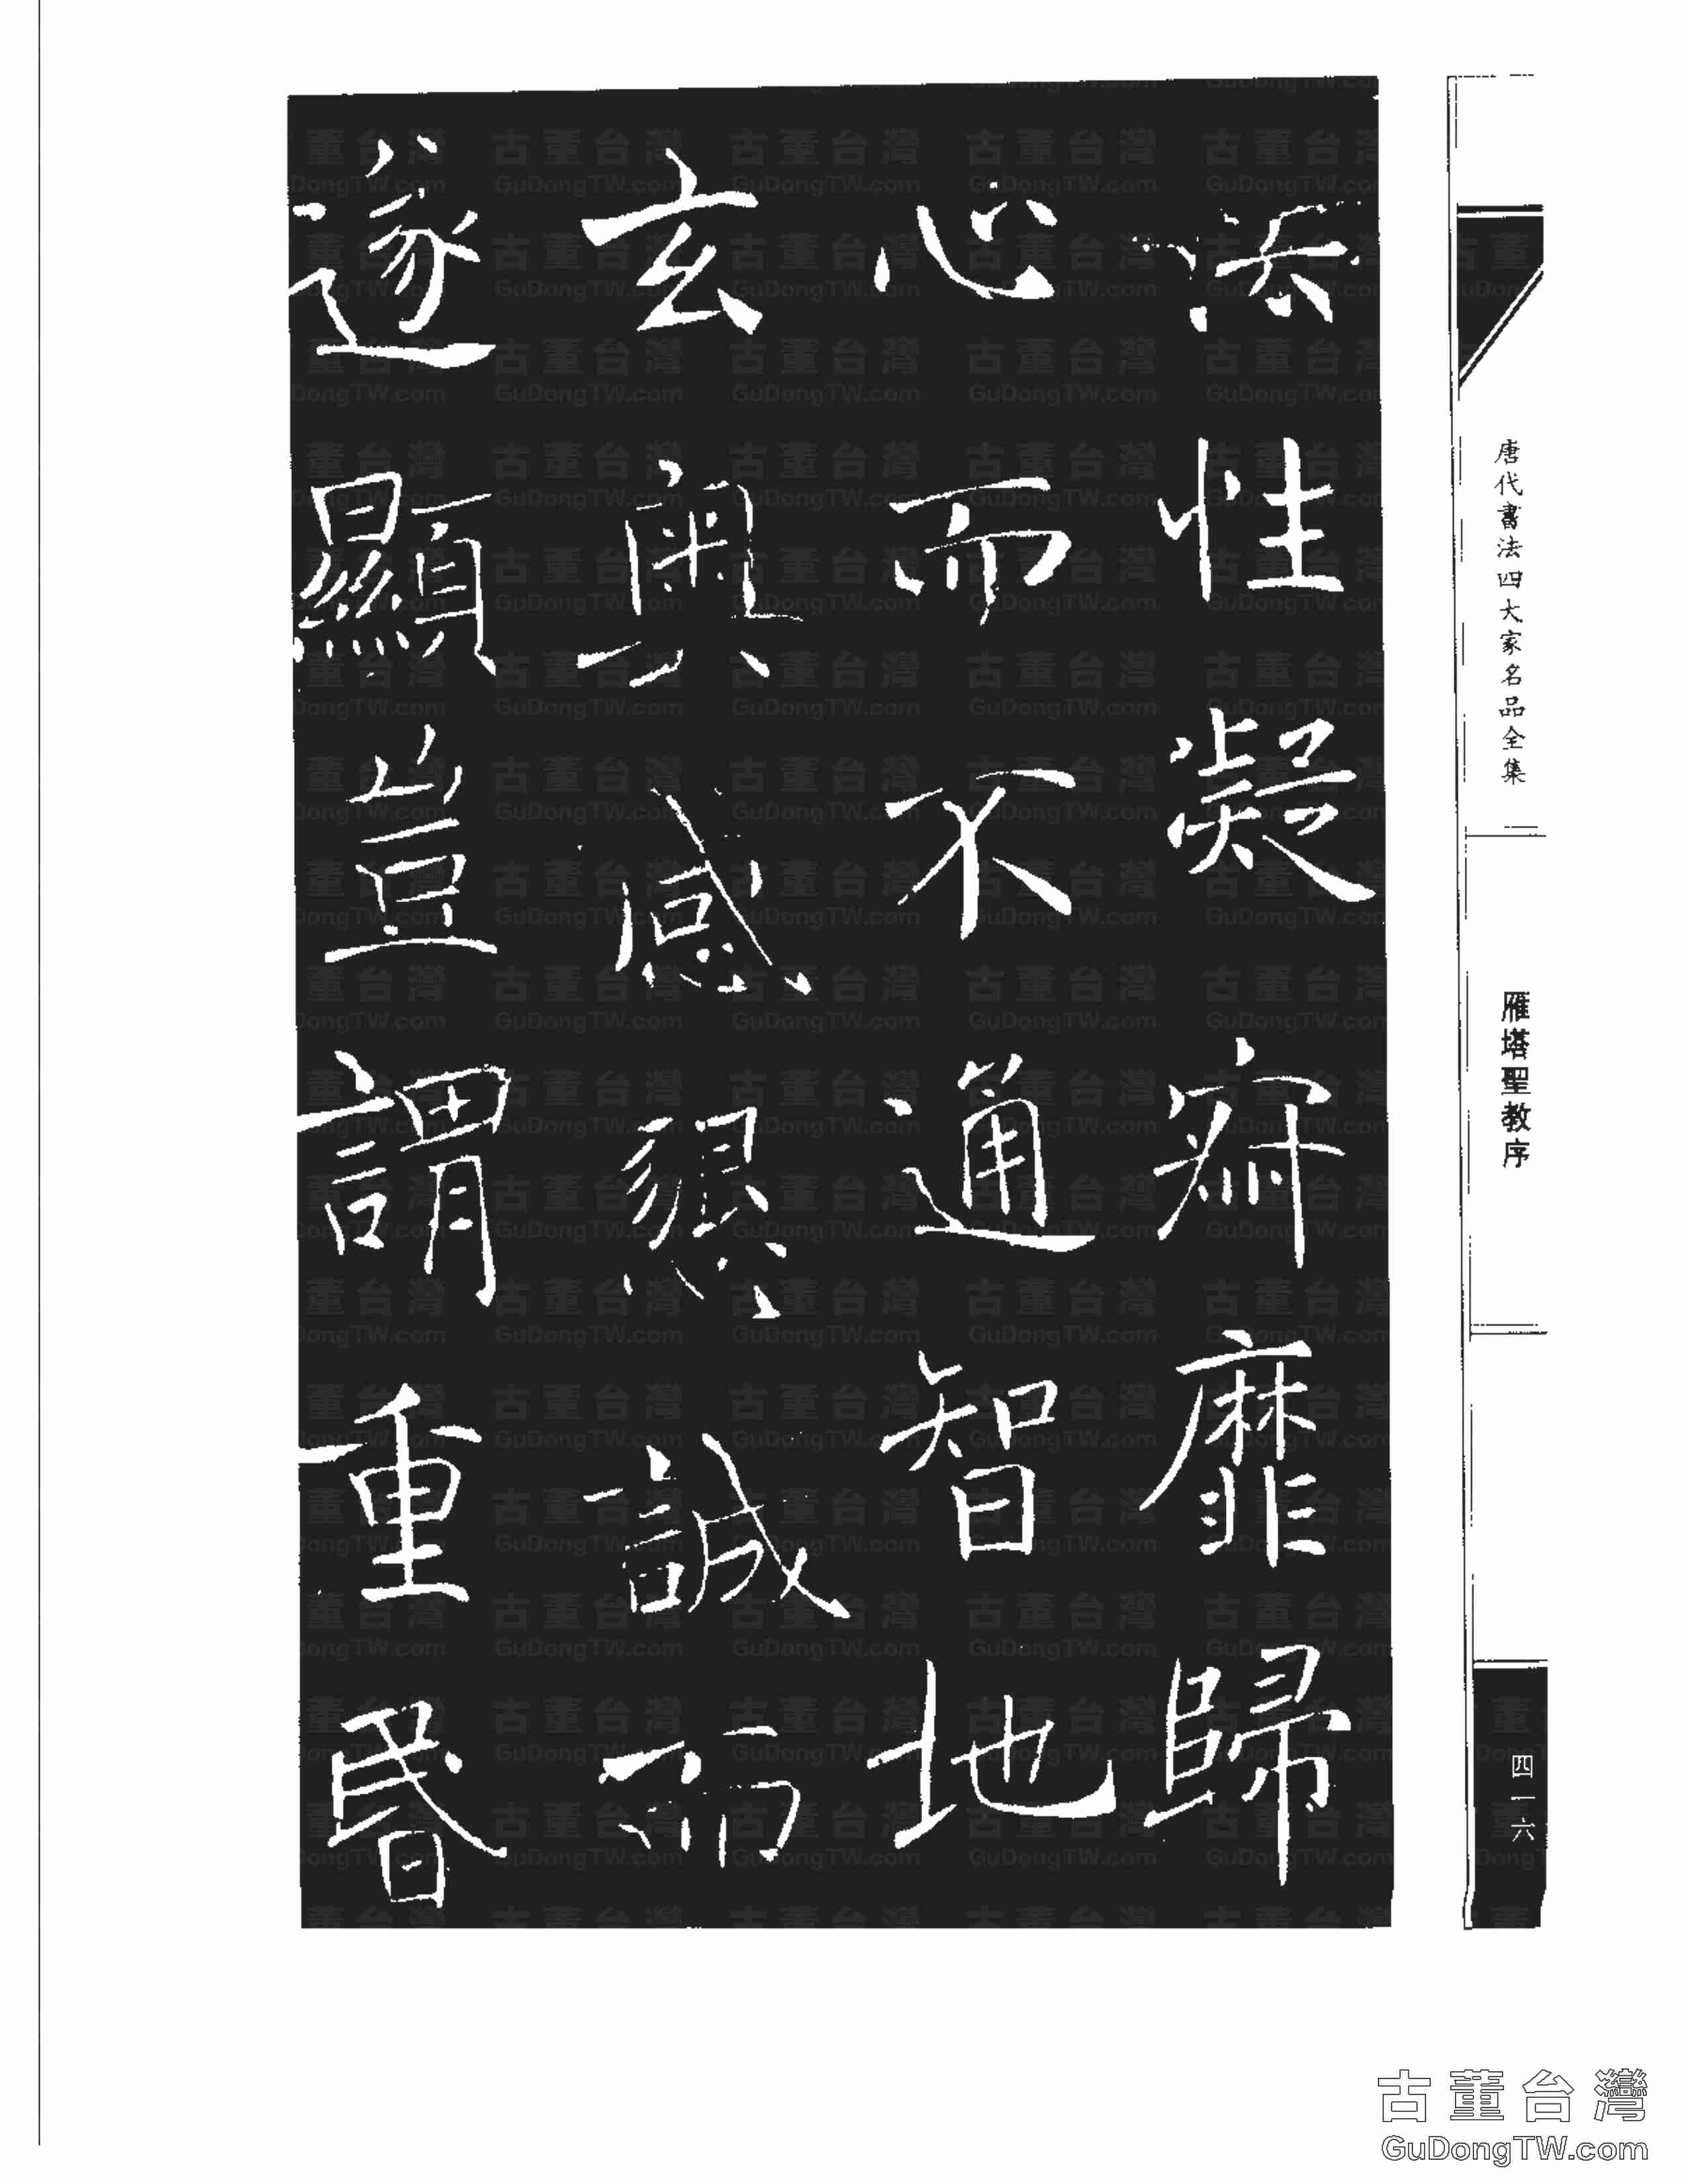 唐代書法四大家名品全集
雁塔聖教序
四一六
法性凝寂靡歸
心而不通智地
玄奧感懇誠而
遂顯豈謂重昬
古董台灣
GuDongTW.com